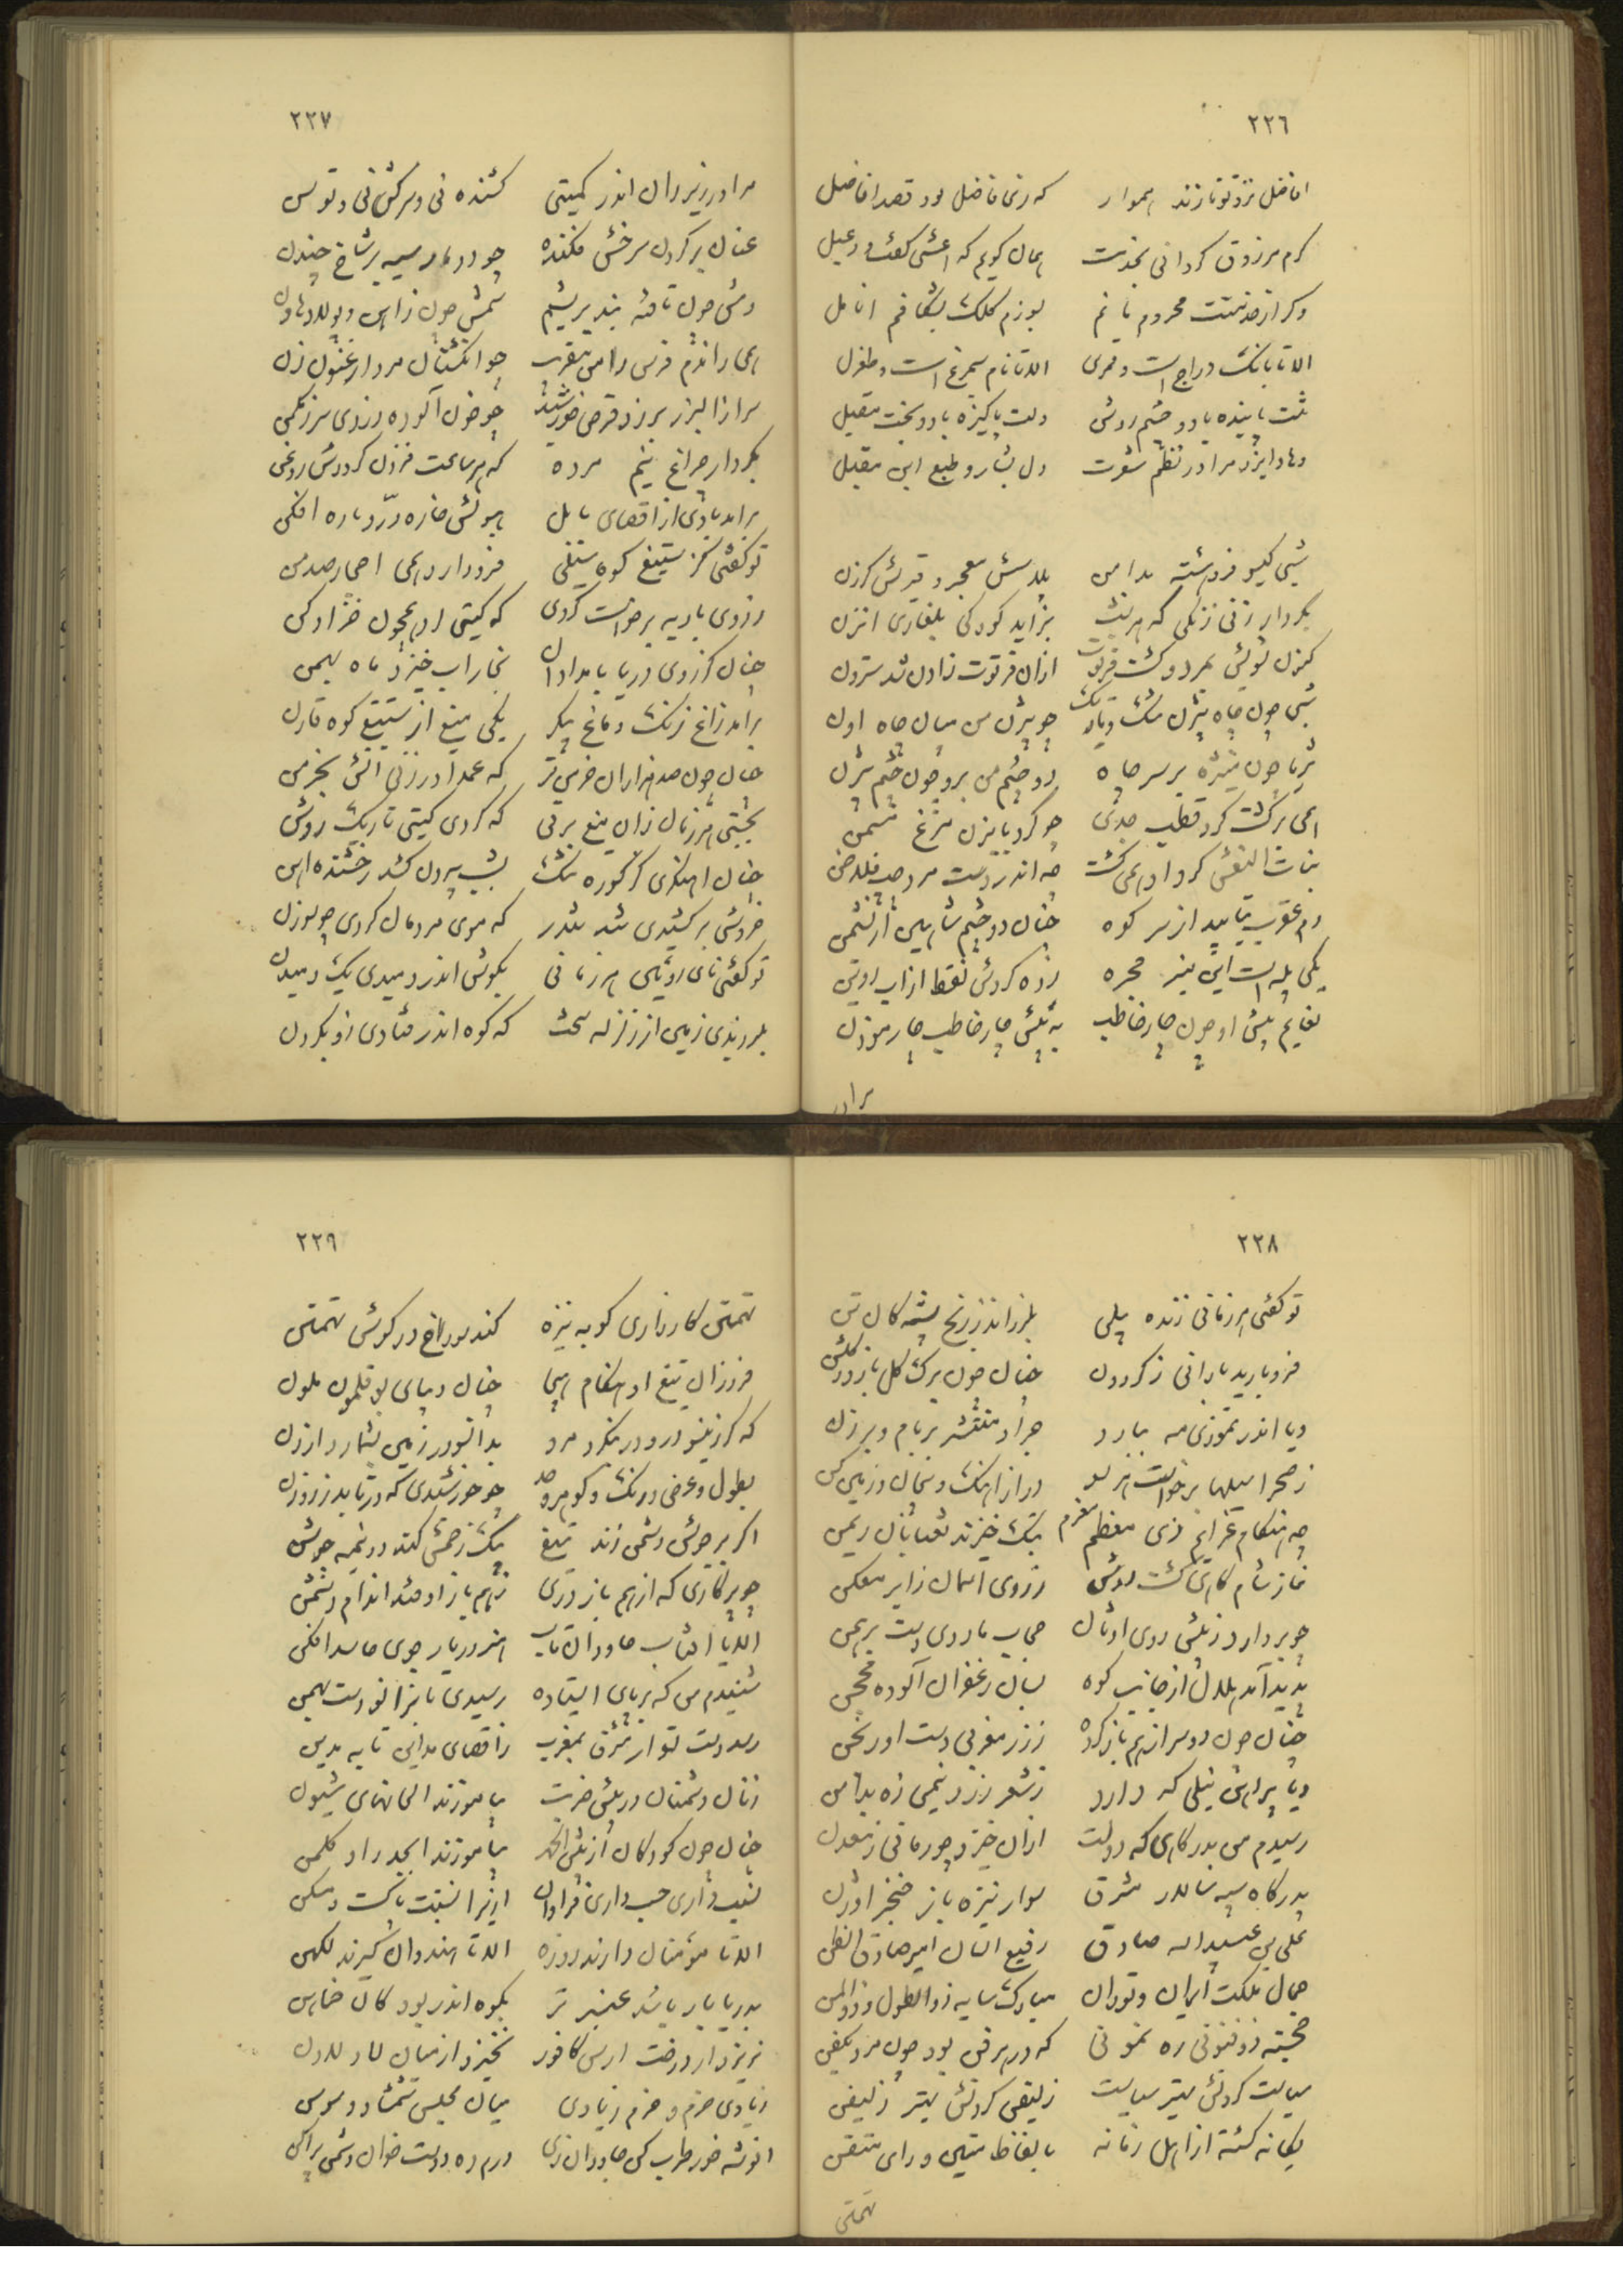 ٢٢٦
افاضل نزد تو تازند هموار که زی فاضل بود قصد افاضل
کرم مرزوق کردانی بخدمت همان کویم که اعشی کفت و دعبل
وکر از خدمتت محروم مانم بسوزم کلک و بشکافم انامل
الا تا بانک دراج است و قمری الا تا نام سیمرغ است و طغرل
تنت پاینده باد و چشم روشن دلت پاکیزه باد و بخت مقبل
دهاد ایزد مرا در نظم شعرت دل بشار و طبع ابن مقبل
شبی کیسو فروهشته بدامن پلاسش معجر و قیرش کرزن
بکردار زنی زنکی که هر شب بزاید کودکی بلغاری آن زن
کنون شویش بمرد و کشت فرتوت ازان فرتوت زادن شد سترون
شبی چون چاه بیژن تنک و تاریک چو بیژن من میان چاه اون
ثریا چون منیژه بر سر چاه دو چشم من برو چون چشم بیژن
همی برکشت کرد قطب جدی چو کرد بابزن مرغ مسمن
بنات النعش کرد او همی کشت چه اندر دست مرد چپ فلاخن
دم عقرب بتابید از سر کوه چنان دو چشم شاهین از نشیمن
یکی پله است این منبر مجره زده کردش نقط از آب روین
نعایم پیش او چون چار خاطب به پیش چار خاطب چار موذن
مرا در
٢٢٧
مرا در زیر ران اندر کمیتی کشنده نی و سرکش نی و توسن
عنان بر کردن سرخش فکنده چو دو مار سیه بر شاخ چندن
دمش چون تافته بند بریشم سمش چون ز آهن و پولاد هاون
همی راندم فرس را من بتقریب چو انکشتان مرد ارغنون زن
سر از البرز برزد قرص خورشید چو خون آلوده دزدی سر ز مکمن
بکردار چراغ نیم مرده که هر ساعت فزون کرددش روغن
برامد بادی از اقصای بابل هبوبش خاره در و باره افکن
تو کفتی کز ستیغ کوه سیلی فرود آرد همی احجار صد من
ز روی بادیه برخواست کردی که کیتی کرد همچون خز ادکن
چنان کز روی دریا بامدادان بخار آب خیزد ماه بهمن
برامد زاغ رنک و ماغ پیکر یکی میغ از ستیغ کوه قارن
چنان چون صد هزاران خرمن تر که عمدا در زنی آتش بخرمن
بجستی هر زمان زان میغ برقی که کردی کیتی تاریک روشن
چنان آهنکری کز کوره تنک بشب بیرون کشد رخشنده آهن
خروشی برکشیدی تند تندر که موی مردمان کردی چو سوزن
تو کفتی نای رویین هر زمانی بکوش اندر دمیدی یک دمیدن
بلرزیدی زمین از زلزله سخت که کوه اندر فتادی زو بکردن
٢٢٨
تو کفتی هر زمانی ژنده پیلی بلرزاند ز رنج پشه کان تن
فرو بارید بارانی ز کردون چنان چون برک کل بارد ز کلشن
ویا اندر تموزی مه ببارد جراد منتشر بر بام و برزن
ز صحرا سیلها برخواست هر سو دراز آهنک و پیچان و زمین کن
چه هنکام عزایم زی معظم معزم بتک خیزند ثعبانان ریمن
نماز شام کاهی کشت روشن ز روی آسمان زابر معکن
چو بردارد ز پیش روی اوثان حجاب ماردی دست برهمن
پدید آمد هلال از جانب کوه بسان زعفران آلوده محجن
چنان چون دو سر از هم باز کرده ز زر مغربی دست آورنجن
ویا پیراهن نیلی که دارد ز شعر زرد نیمی زه بدامن
رسیدم من بدرکاهی که دولت ازان خیزد چو رمانی ز معدن
بدرکاه سپه سالار مشرق سوار نیزه باز خنجر اوژن
علی بن عبیدالله صادق رفیع البیان امیر صادق الظن
جمال ملکت ایران و توران مبارک سایه ذو الطول و ذو المن
خجسته ذو فنونی ره نمونی که در هر فن بود چون مرد یکفن
سیاست کردنش بهتر سیاست زلیفن کردنش بهتر زلیفن
یکانه کشته از اهل زمانه بالفاظ متین و رای متقن
تهمتن
٢٢٩
تهمتن کارزاری کو به نیزه کند سوراخ در کوش تهمتن
فروزان تیغ او هنکام هیجا چنان دیبای بوقلمون ملون
که کر زینسو درو در بنکرد مرد بدانسو در زمین بشمارد ارزن
بطول و عرض و رنک و کوهر و حد چو خورشیدی که در تابد ز روزن
اکر بر جوش دشمن زند تیغ بیک زخمش کند دو نیمه جوشن
چو پرکاری که از هم باز دری ز هم باز اوفتد اندام دشمن
الا یا آفتاب جاودان تاب هنرور یار جوی حاسد افکن
شنیدم من که بر پای ایستاده رسیدی تا بزانو دست بهمن
رسد دست تو از مشرق بمغرب ز اقصای مداین تا به مدین
زنان دشمنان در پیش ضربت بیاموزند الحانهای شیون
چنان چون کودکان از پیش الحمد بیاموزند ابجد را و کلمن
نسب داری حسب داری فراوان ازیرا نسبتت پاکست و مسکن
الا تا مؤمنان دارند روزه الا تا هندوان کیرند لکهن
بدریا بار باشد عنبر تر بکوه اندر بود کان خماهن
نریزد از درخت ارس کافور نخیزد از میان لاد لادن
زیادی خرم و خرم زیادی میان مجلس شمشاد و سوسن
انوشه خور طرب کن جاودان زی درم ده دوست خوان دشمن پراکن